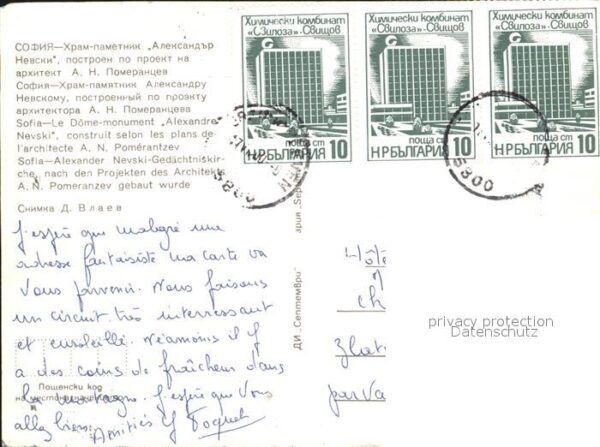 СОФИЯ—Храм-паметник „Александър
Невски", построен по проект на
архитект А. Н. Померанцев
София—Храм-паметник Александру
Невскому, построенный по проэкту
архитектора А. Н. Померанцева
Sofia—Le Dôme-monument „Alexandre
Nevski", construit selon les plans de
l'architecte A. N. Pomérantzev
Sofia—Alexander Nevski-Gedächtniskir-
che, nach den Projekten des Architekten
A. N. Pomeranzev gebaut wurde
Снимка Д. Влаев
J'espère que malgré une
adresse fantaisiste ma carte va
vous parvenir. Nous faisons
un circuit très interressant
et ensoleillé. Néamoins il y
a des coins de fraîcheur dans
la montagne. J'espère que vous
allez bien.
Amitiés
Пощенски код
на местоназначението
ДИ „Септември"
Химически комбинат
„Свилоза"-Свищов
поща ст
НРБЪЛГАРИЯ 10
Химически комбинат
„Свилоза"-Свищов
поща ст
НРБЪЛГАРИЯ 10
Химически комбинат
„Свилоза"-Свищов
поща ст
НРБЪЛГАРИЯ 10
5800
Hôte
ch
Zlat
par Va
privacy protection
Datenschutz